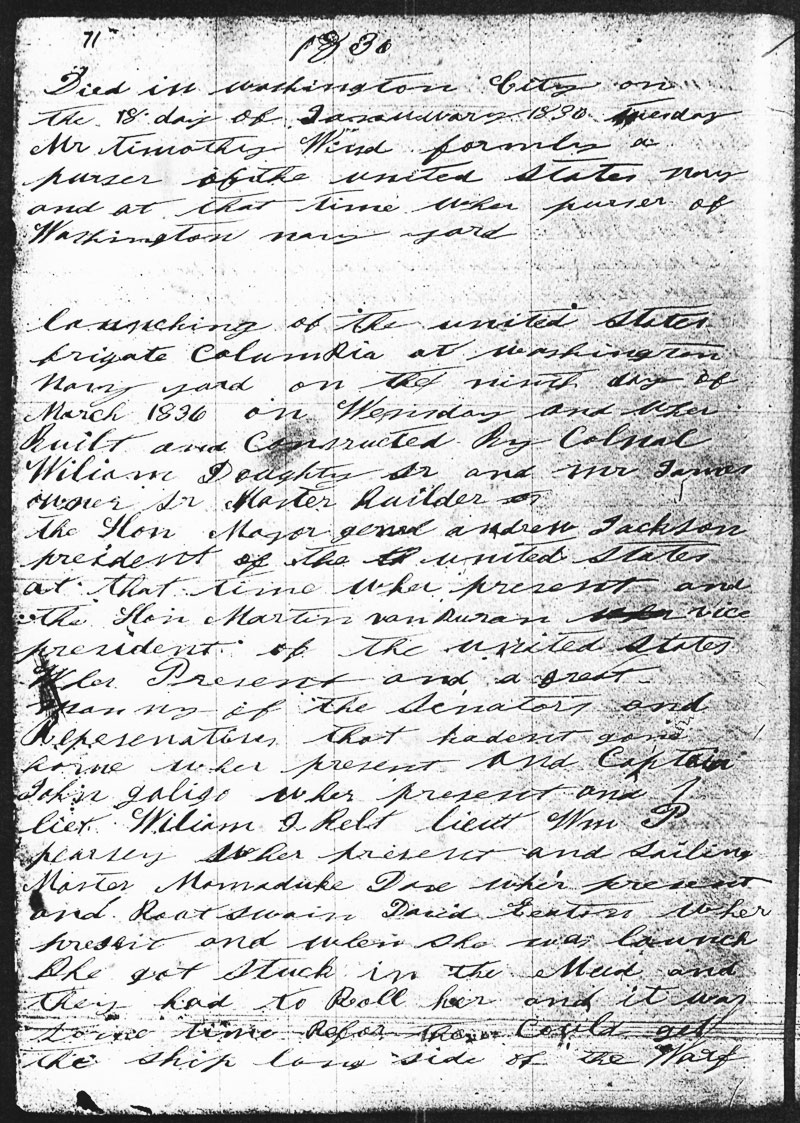 71
1830
Died in washington City on
the 18 day of Januuary 1830 tuesday
Mr timothy Wind formly a
purser of the united states navy
and at that time wher purser of
Washington navy yard
launching of the united States
frigate Columbia at washington
Navy yard on the ninth day of
March 1836 on Wensday and wher
Built and Constructed By Colnal
Wiliam Doughty sr and mr James
owner sr Master Builder
the Hon Major genral andrew Jackson
president of the united states
at that time wher present and
the Hon Martin van Buran vice
president of the united States
Wher Present and a great
manny of the Senators and
that hadent gone
home wher present and Captain
John galiso wher present and
liet Wiliam J Belt lieut Wm P
pearsey wher present and sailing
Master Mamaduke Dove wher present
and Boatswain David Eaton wher
present and when she was launch
She got stuck in the Mud and
they had to Roll her and it was
some time Befor they Could get
the ship long side of the Warf